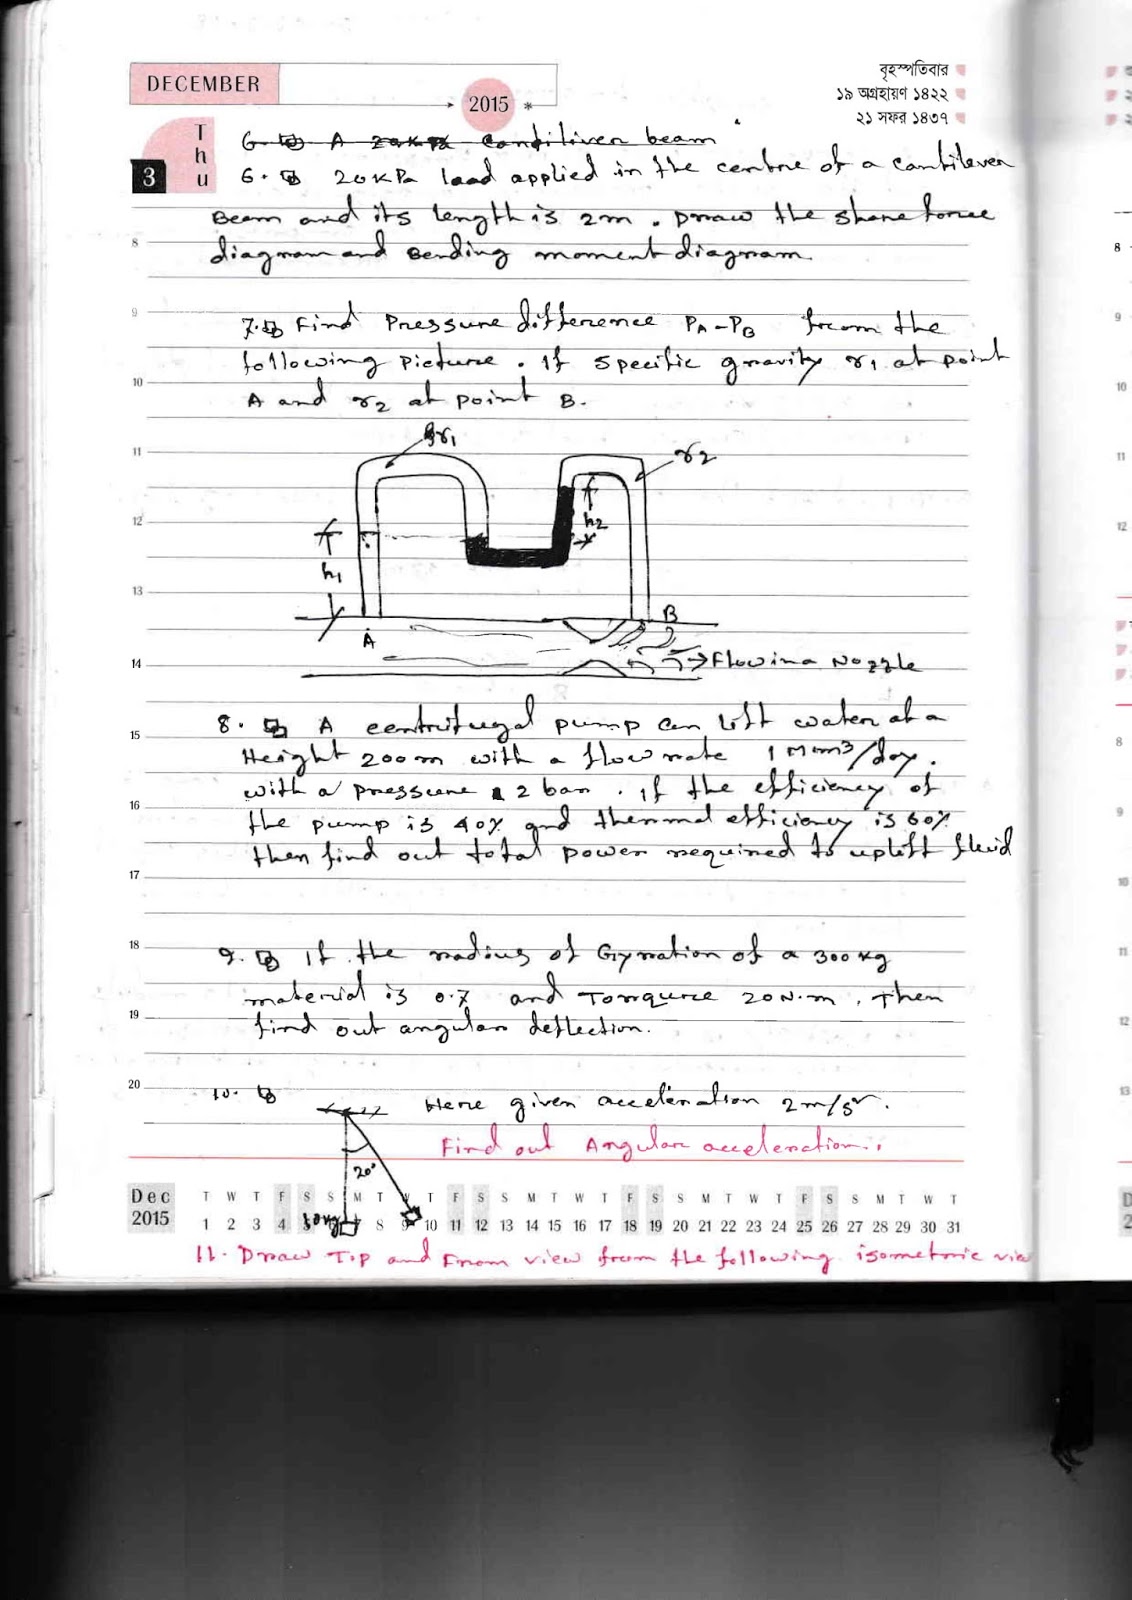 DECEMBER
2015
বৃহস্পতিবার
১৯ অগ্রহায়ণ ১৪২২
২১ সফর ১৪৩৭
Thu
3
6. A 20KPa Cantiliver beam
6. 20KPa load applied in the centre of a Cantilever
Beam and its length is 2m. Draw the share force
diagram and Bending moment diagram.
7. Find Pressure difference PA-PB from the
following Picture. If Specific gravity r1 at point
A and r2 at point B.
r1
r2
h2
h1
A
B
Flowing Nozzle
8. A centrifugal pump can lift water at a
Height 200m with a flow rate 1 Mm3/day.
with a pressure 2 bar. If the efficiency of
the pump is 40% and thermal efficiency is 60%
then find out total power required to uplift fluid
9. If the radius of Gyration of a 300 Kg
material is 0.7 and Torque 20N.m. Then
find out angular deflection.
10. Here given acceleration 2m/s2.
Find out Angular acceleration.
20°
8
9
10
11
12
13
14
15
16
17
18
19
20
Dec
2015
T W T F S S M T W T F S S M T W T F S S M T W T F S S M T W T
1 2 3 4 8 9 10 11 12 13 14 15 16 17 18 19 20 21 22 23 24 25 26 27 28 29 30 31
11. Draw Top and From view from the following isometric view